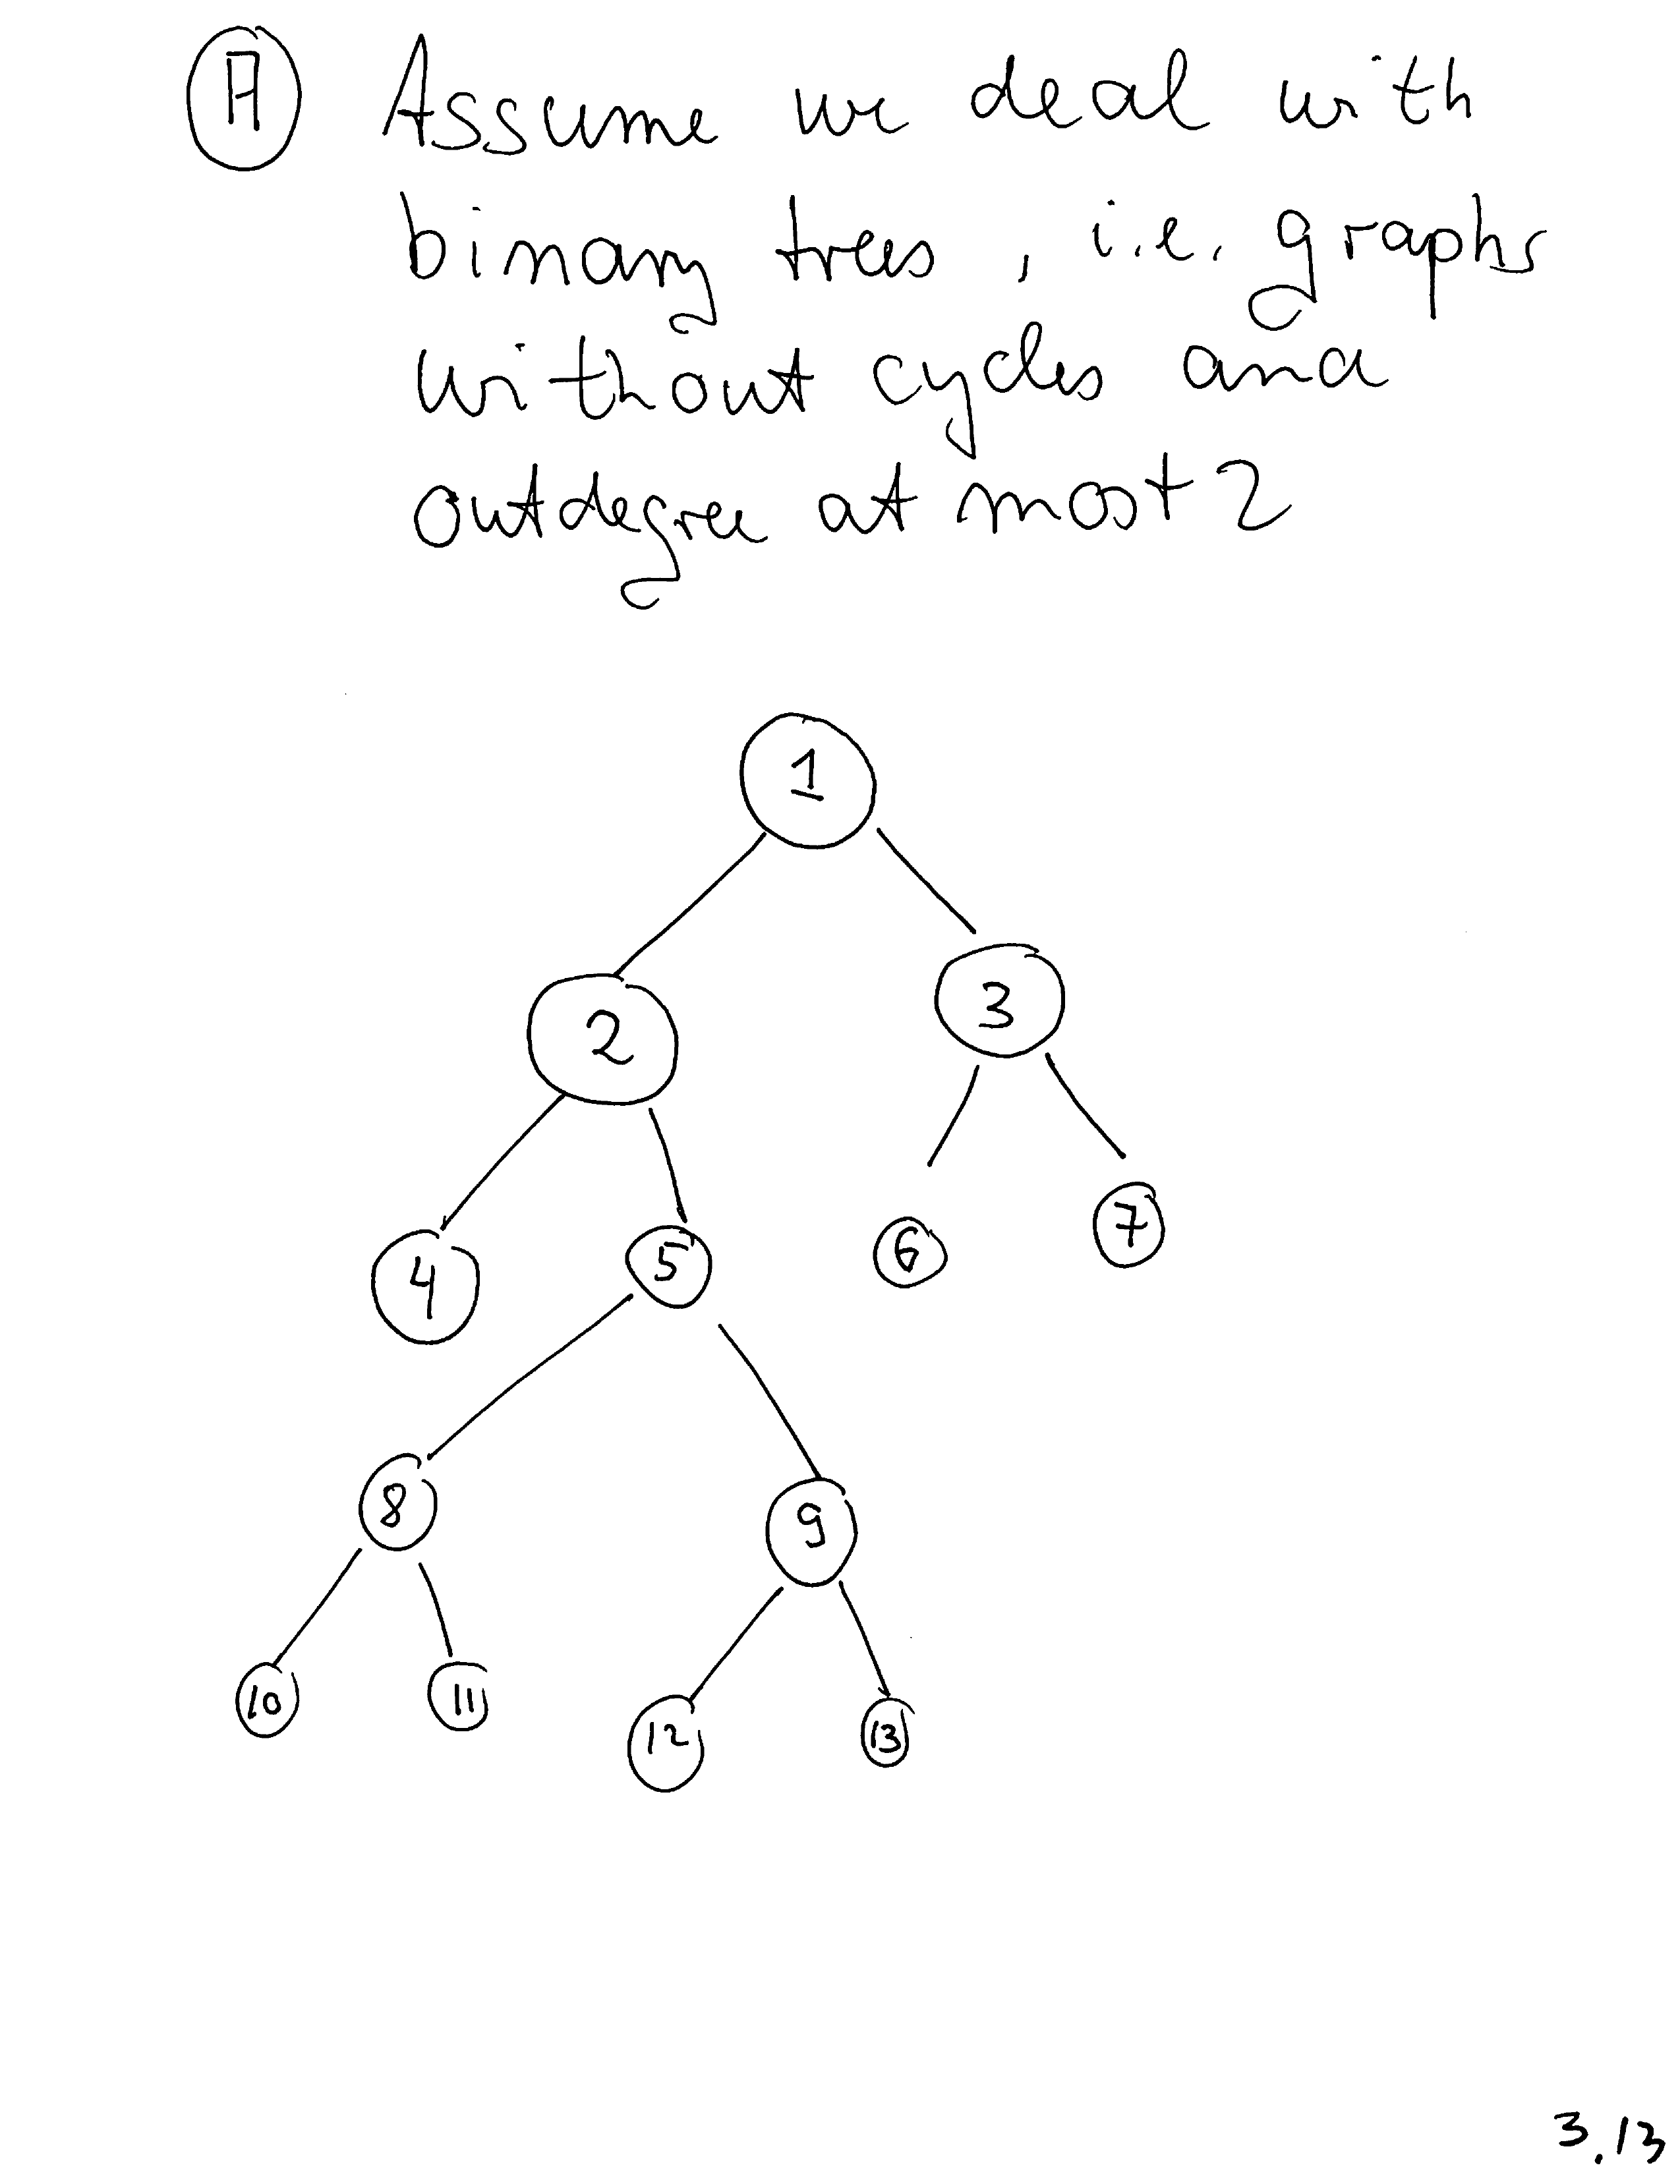 A Assume we deal with
binary trees, i.e. graphs
without cycles and
outdegree at most 2
1
2 3
4 5 6 7
8 9
10 11 12 13
3.13